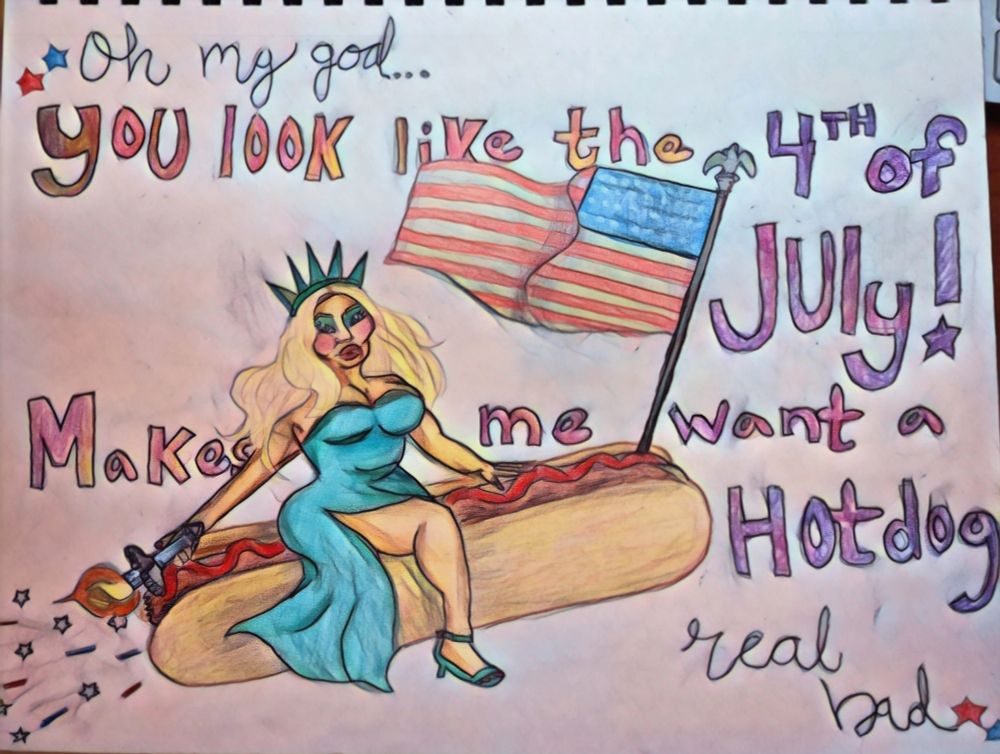 Oh my god...
YOU look like the 4TH of
July!
Makes me want a
Hotdog
real
bad